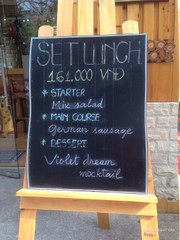 SET LUNCH
161.000 VNĐ
* STARTER
Mix salad
* MAIN COURSE
German sausage
* DESSERT
Violet dream
mocktail